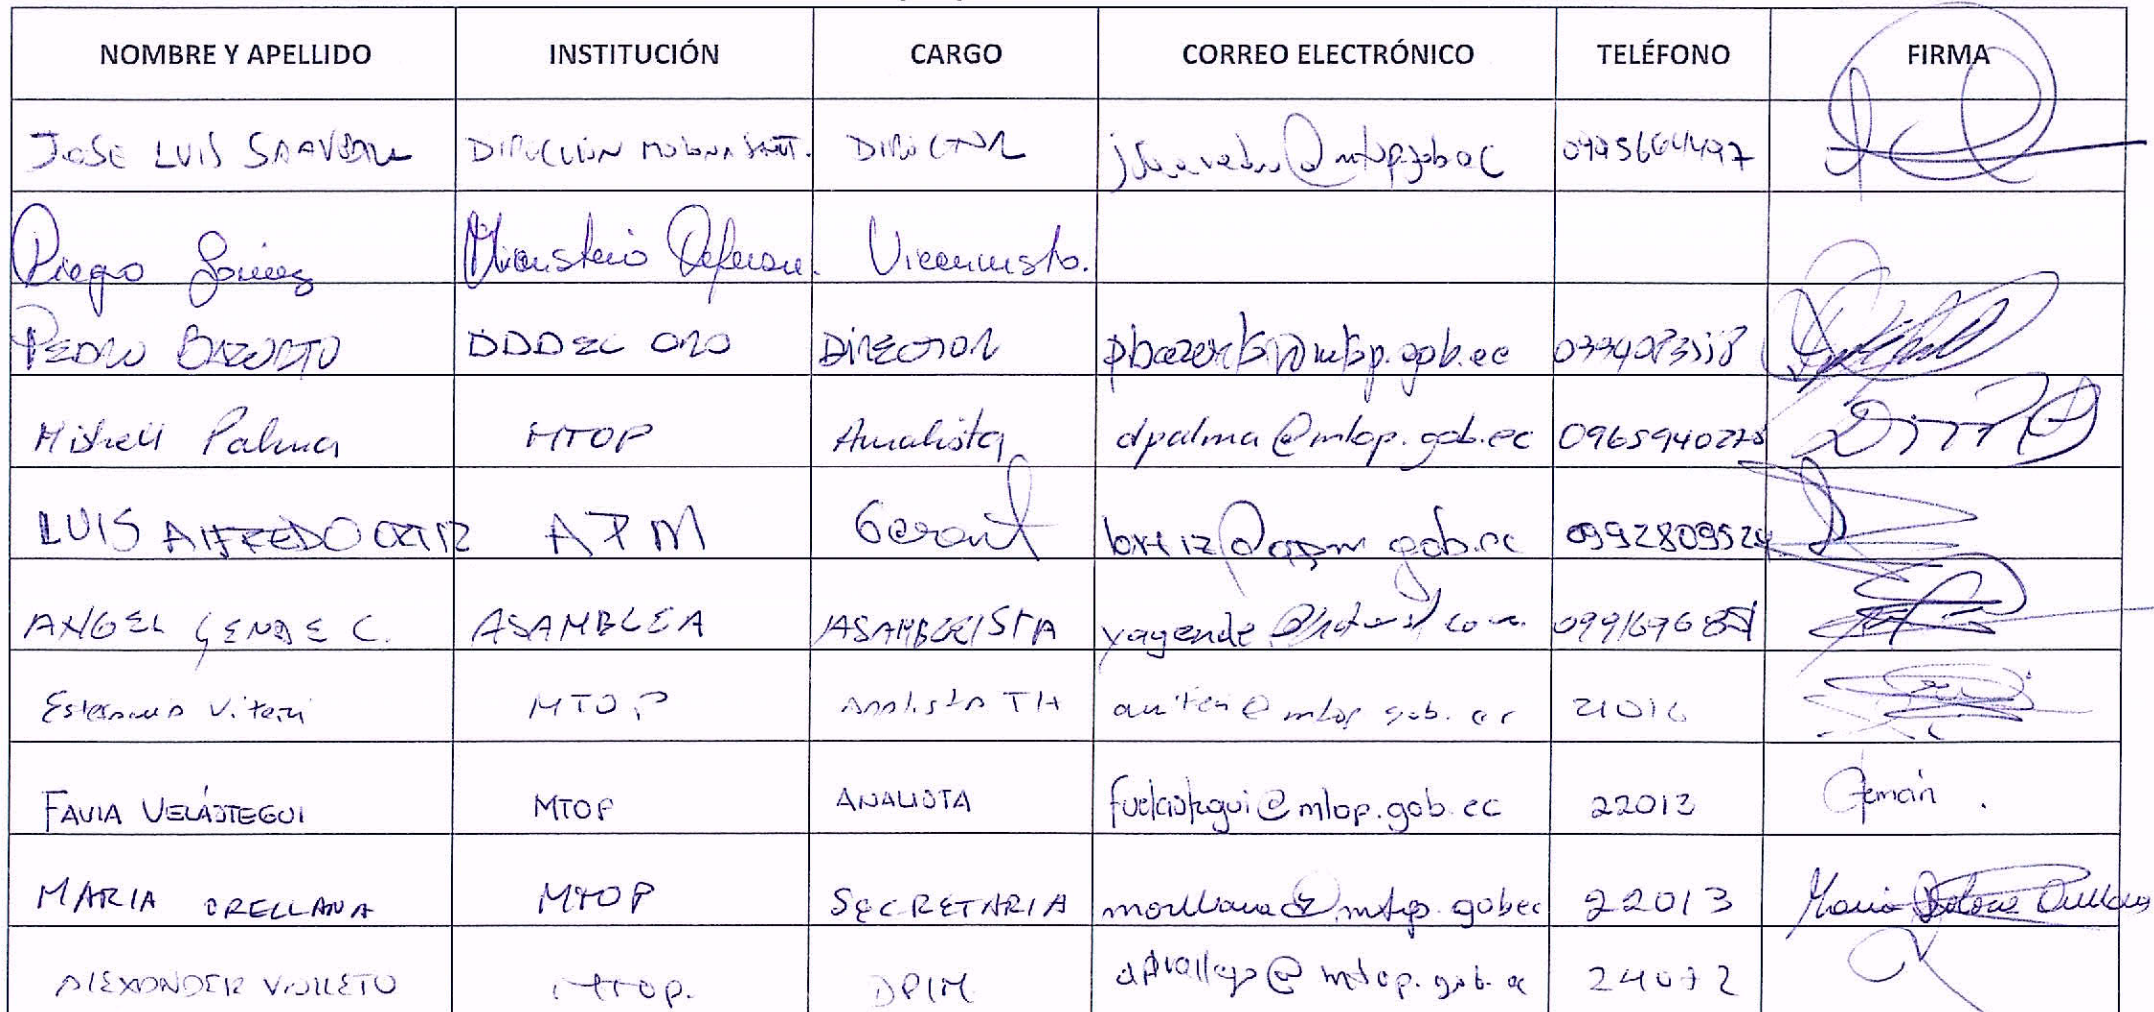 NOMBRE Y APELLIDO INSTITUCIÓN CARGO CORREO ELECTRÓNICO TELÉFONO FIRMA
JOSE LUIS SAAVEDRA DIRECCIÓN MORONA SANT. DIRECTOR
Diego Ministerio Defensa. Viceministro.
PEDRO BAZURTO DDDEL ORO DIRECTOR
Mishell Palma MTOP Analista dpalma@mtop.gob.ec
LUIS ALFREDO ORTIZ APM Gerente lortiz@apm.gob.ec 0992809524
ANGEL GENDE C. ASAMBLEA ASAMBLEISTA yagende@hotmail.com
Viteri MTOP Analista TH aviteri@mtop.gob.ec 21016
FAVIA VELÁSTEGUI MTOP ANALISTA fvelastegui@mtop.gob.ec 22013
MARIA ORELLANA MTOP SECRETARIA morellana@mtop.gob.ec 22013 Maria Dolores Orellana
ALEXANDER VALLEJO MTOP. DPIM dpvallejo@mtop.gob.ec 24072